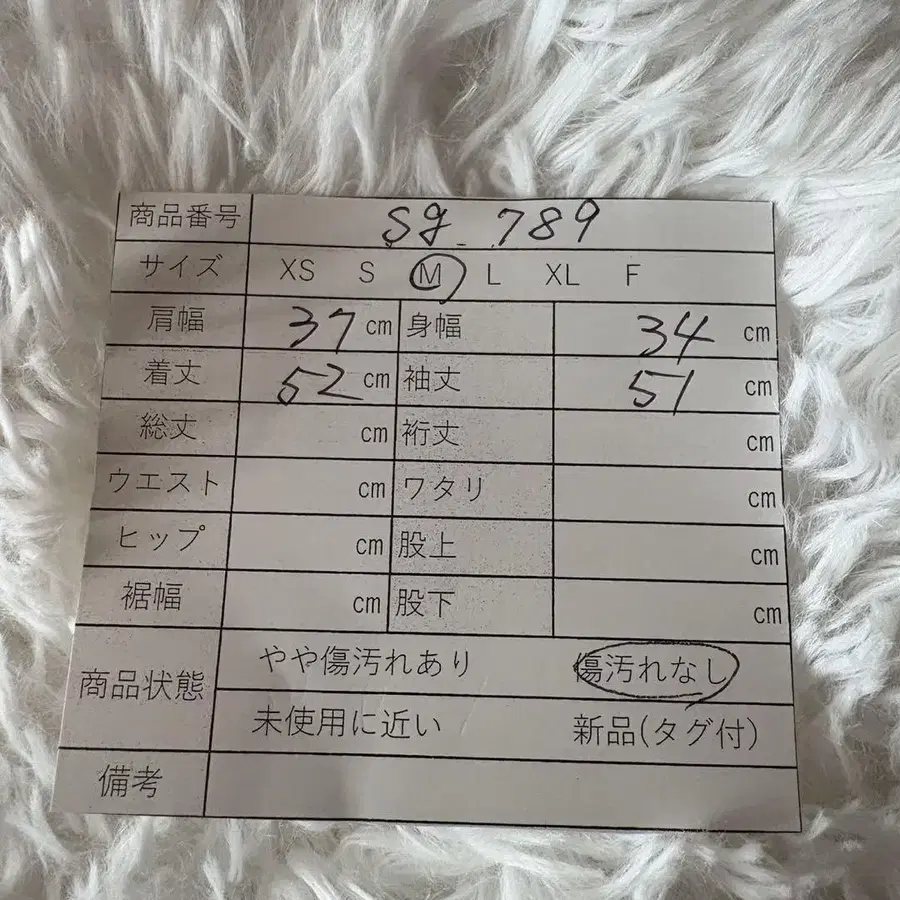 商品番号 sg_789
サイズ XS S M L XL F
肩幅 37 cm 身幅 34 cm
着丈 52 cm 袖丈 51 cm
総丈 cm 裄丈 cm
ウエスト cm ワタリ cm
ヒップ cm 股上 cm
裾幅 cm 股下 cm
商品状態 やや傷汚れあり 傷汚れなし
未使用に近い 新品(タグ付)
備考